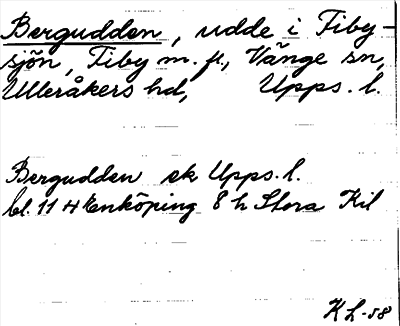 Bergudden, udde i Fiby-
sjön, Fiby m. fl., Vänge sn,
Ulleråkers hd, Upps. l.
Bergudden ek Upps. l.
bl. 11 Enköping 8 h Stora Kil
KL-58